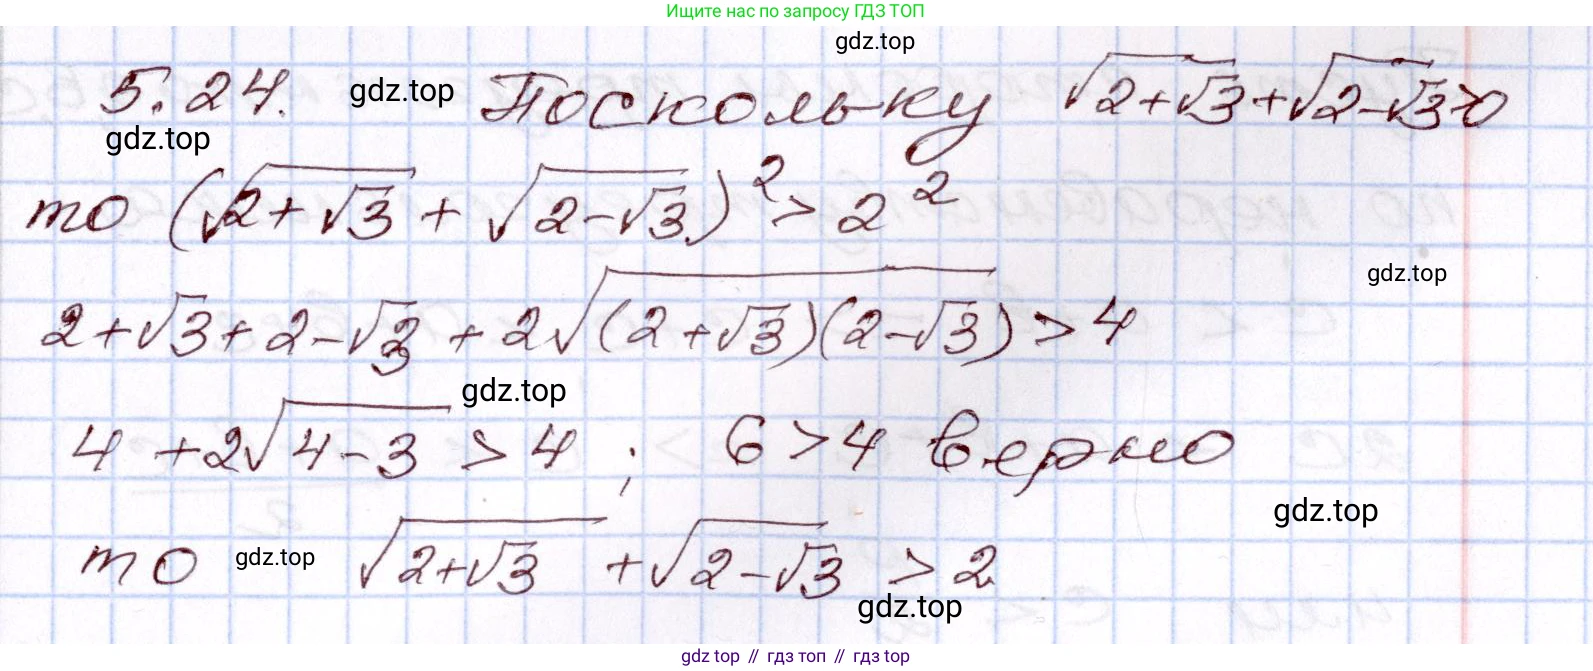 Ищите нас по запросу ГДЗ ТОП
gdz.top
5.24. gdz.top Поскольку √(2+√3)+√(2-√3)>0
gdz.top
то (√(2+√3) + √(2-√3))² > 2²
gdz.top
2+√3+2-√3 + 2√((2+√3)(2-√3)) > 4
gdz.top
4 +2√(4-3) > 4 ; 6>4 верно
gdz.top
то gdz.top √(2+√3) +√(2-√3) > 2
gdz.top
gdz top // гдз топ // gdz top